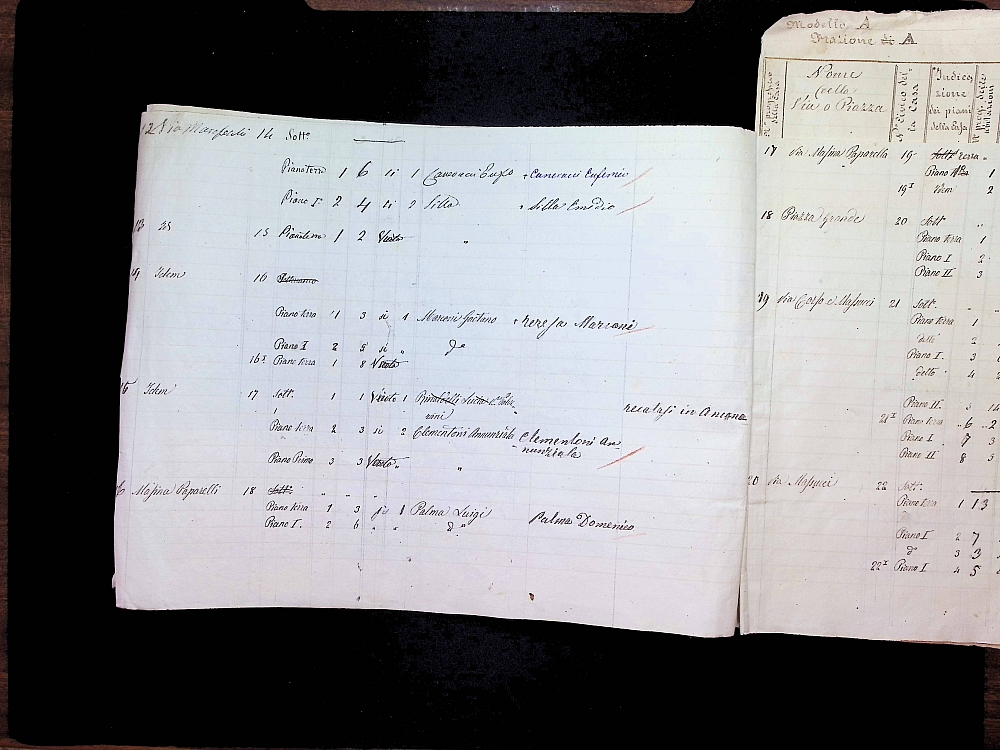 Modello A
Frazione di A
Nome della Via o Piazza
N° civico della Casa
Indicazione dei piani della Casa
12 Via 14 Sott°
Piano Terra 1 6 si 1 Canonici + Canonici Eufemio
Piano I° 2 4 si 2 Silla Silla Emidio
13 Id 15 Piano terra 1 2 Vuoto "
14 Idem 16
Piano terra 1 3 si 1 Marconi Gaetano + Teresa Marconi
Piano I 2 5 si " d°
16 I Piano terra 1 8 Vuoto
15 Idem 17 Sott. 1 1 Vuoto 1
recatasi in Ancona
Piano terra 2 3 si 2 Clementoni Annunziata Clementoni An-
nunziata
Piano Primo 3 3 Vuoto " "
16 Massina Paparelli 18 Sott.
Piano terra 1 3 si 1 Palma Luigi Palma Domenico
Piano I. 2 6 " " d°
17 Via Massina Paparella 19 Sott. terra "
Piano 1
19 I Idem 1
18 Piazza Grande 20 Sott. "
Piano terra 1
Piano I 2
Piano II 3
19 Via Corso e Massucci 21 Sott. "
Piano terra 1
detto 2
Piano I. 3
detto 4
Piano II. 5
21 I Piano terra 6 2
Piano I 7 3
Piano II 8 5
20 Via Massucci 22 Sott.
Piano terra 1 13
Piano I 2 7
d° 3 3
22 I Piano I 4 5